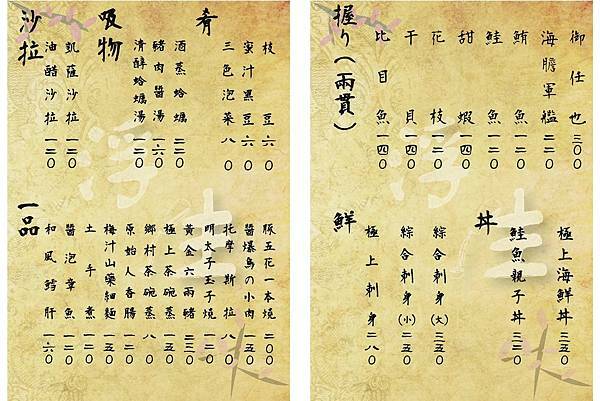 肴
枝豆六〇
蜜汁黑豆六〇
三色泡菜八〇
吸物
酒蒸蛤蠣二二〇
豬肉醬湯一六〇
清醇蛤蠣湯一二〇
沙拉
凱薩沙拉一二〇
油醋沙拉一二〇
一品
豚五花一本燒二〇〇
醬爆鳥の小肉一五〇
托摩斯拉八〇
明太子玉子燒一二〇
黃金六兩豬二三〇
極上茶碗蒸一五〇
鄉村茶碗蒸八〇
原始人香腸一二〇
梅汁山藥細麵一五〇
土手煮一二〇
醬泡章魚一二〇
和風鱈肝一六〇
握り(兩貫)
御仕也三〇〇
海膽軍艦二二〇
鮪魚一二〇
鮭魚一二〇
甜蝦一四〇
花枝一二〇
干貝一四〇
比目魚一四〇
丼
極上海鮮丼三五〇
鮭魚親子丼三二〇
鮮
綜合刺身(大)三五〇
綜合刺身(小)二五〇
極上刺身二八〇
浮生
浮生